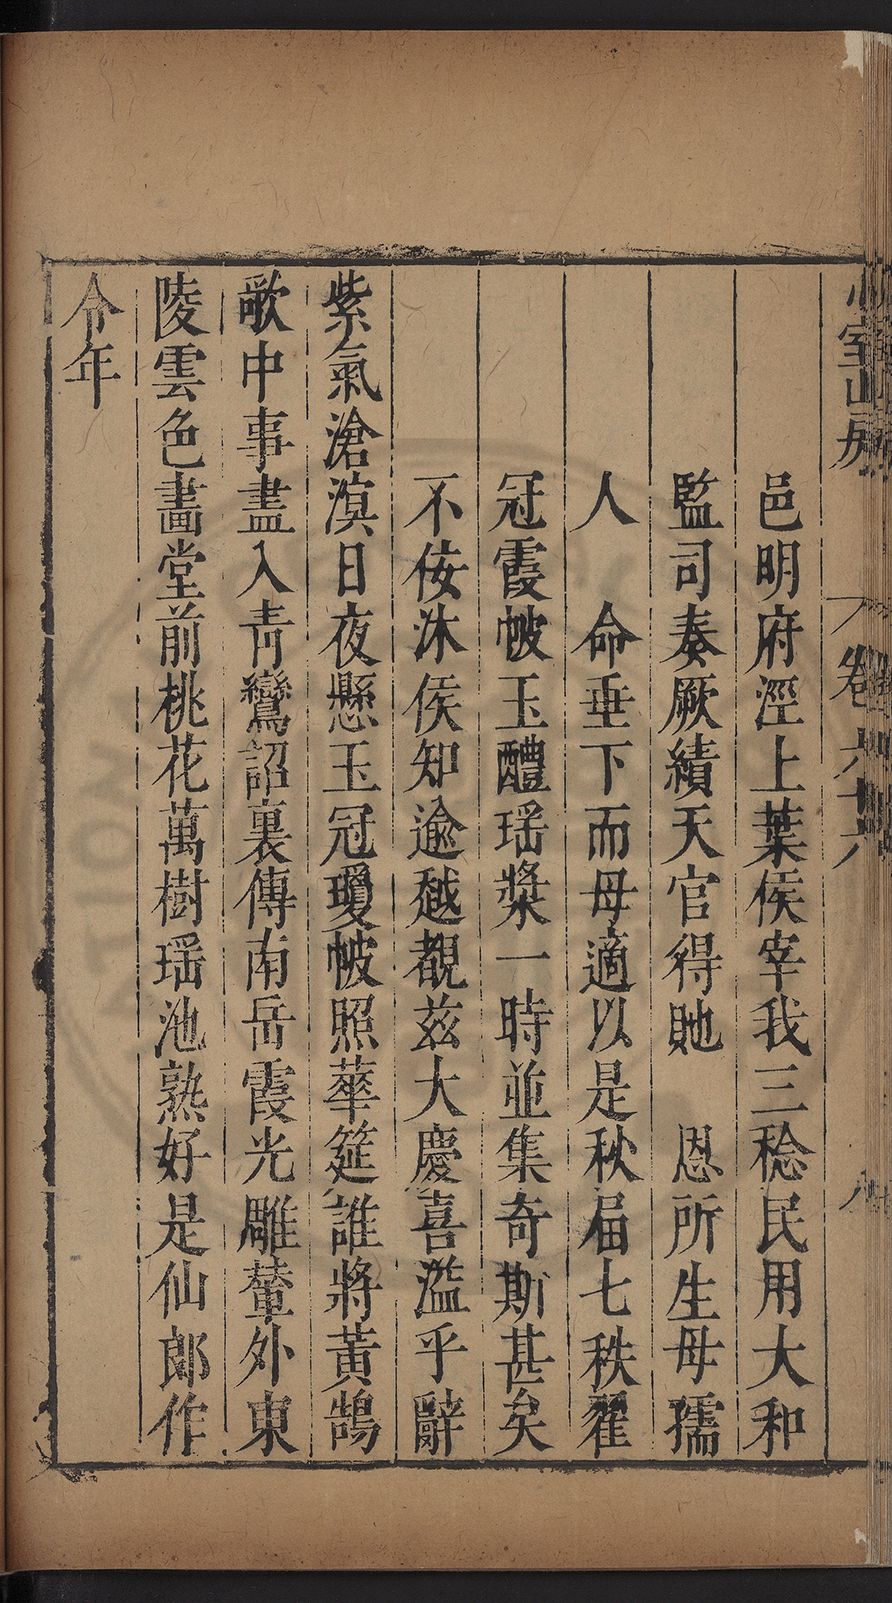 邑明府涇上葉侯宰我三稔民用大和
監司奏厥績天官得貤　恩所生母孺
人　命垂下而母適以是秋屆七秩翟
冠霞帔玉醴瑶漿一時並集奇斯甚矣
不佞沐侯知逾越覩茲大慶喜濫乎辭
紫氣滄溟日夜懸玉冠瓊帔照華筵誰將黃鵠
歌中事盡入青鸞詔裏傳南岳霞光雕輦外東
陵雲色畵堂前桃花萬樹瑶池熟好是仙郎作
令年
室山房
卷六十六